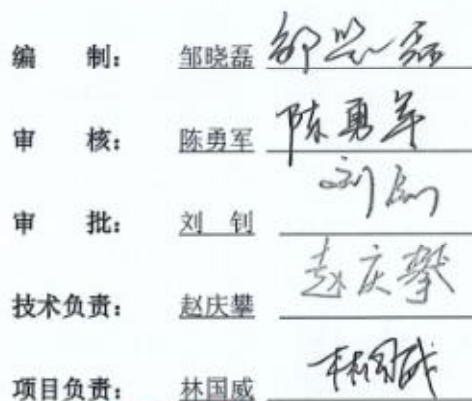 编 制： 邹晓磊 邹晓磊
审 核： 陈勇军 陈勇军
审 批： 刘 钊 刘钊
技术负责： 赵庆攀 赵庆攀
项目负责： 林国威 林国威